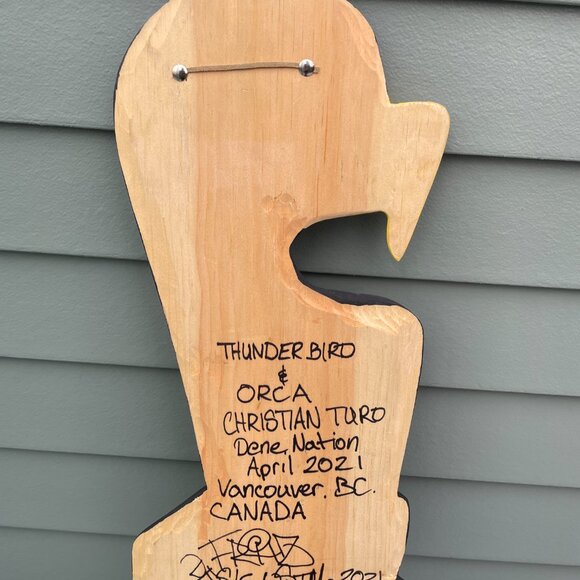 THUNDERBIRD
&
ORCA
CHRISTIAN TURO
Dene Nation
April 2021
Vancouver. BC.
CANADA
2021